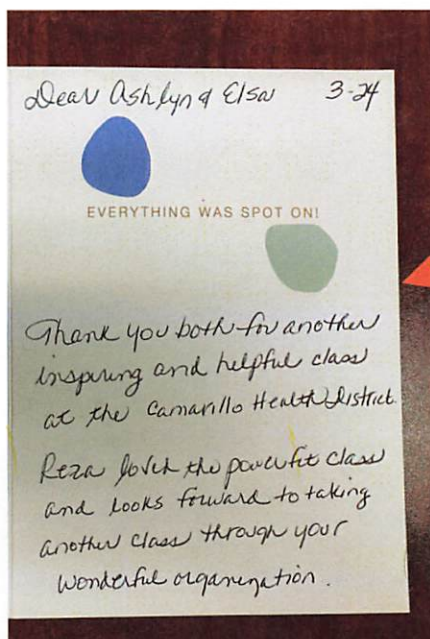 Dear Ashlyn & Elsa 3-24
EVERYTHING WAS SPOT ON!
Thank you both for another
inspiring and helpful class
at the Camarillo Health District.
Reza loved the powerfit class
and looks forward to taking
another class through your
wonderful organization.